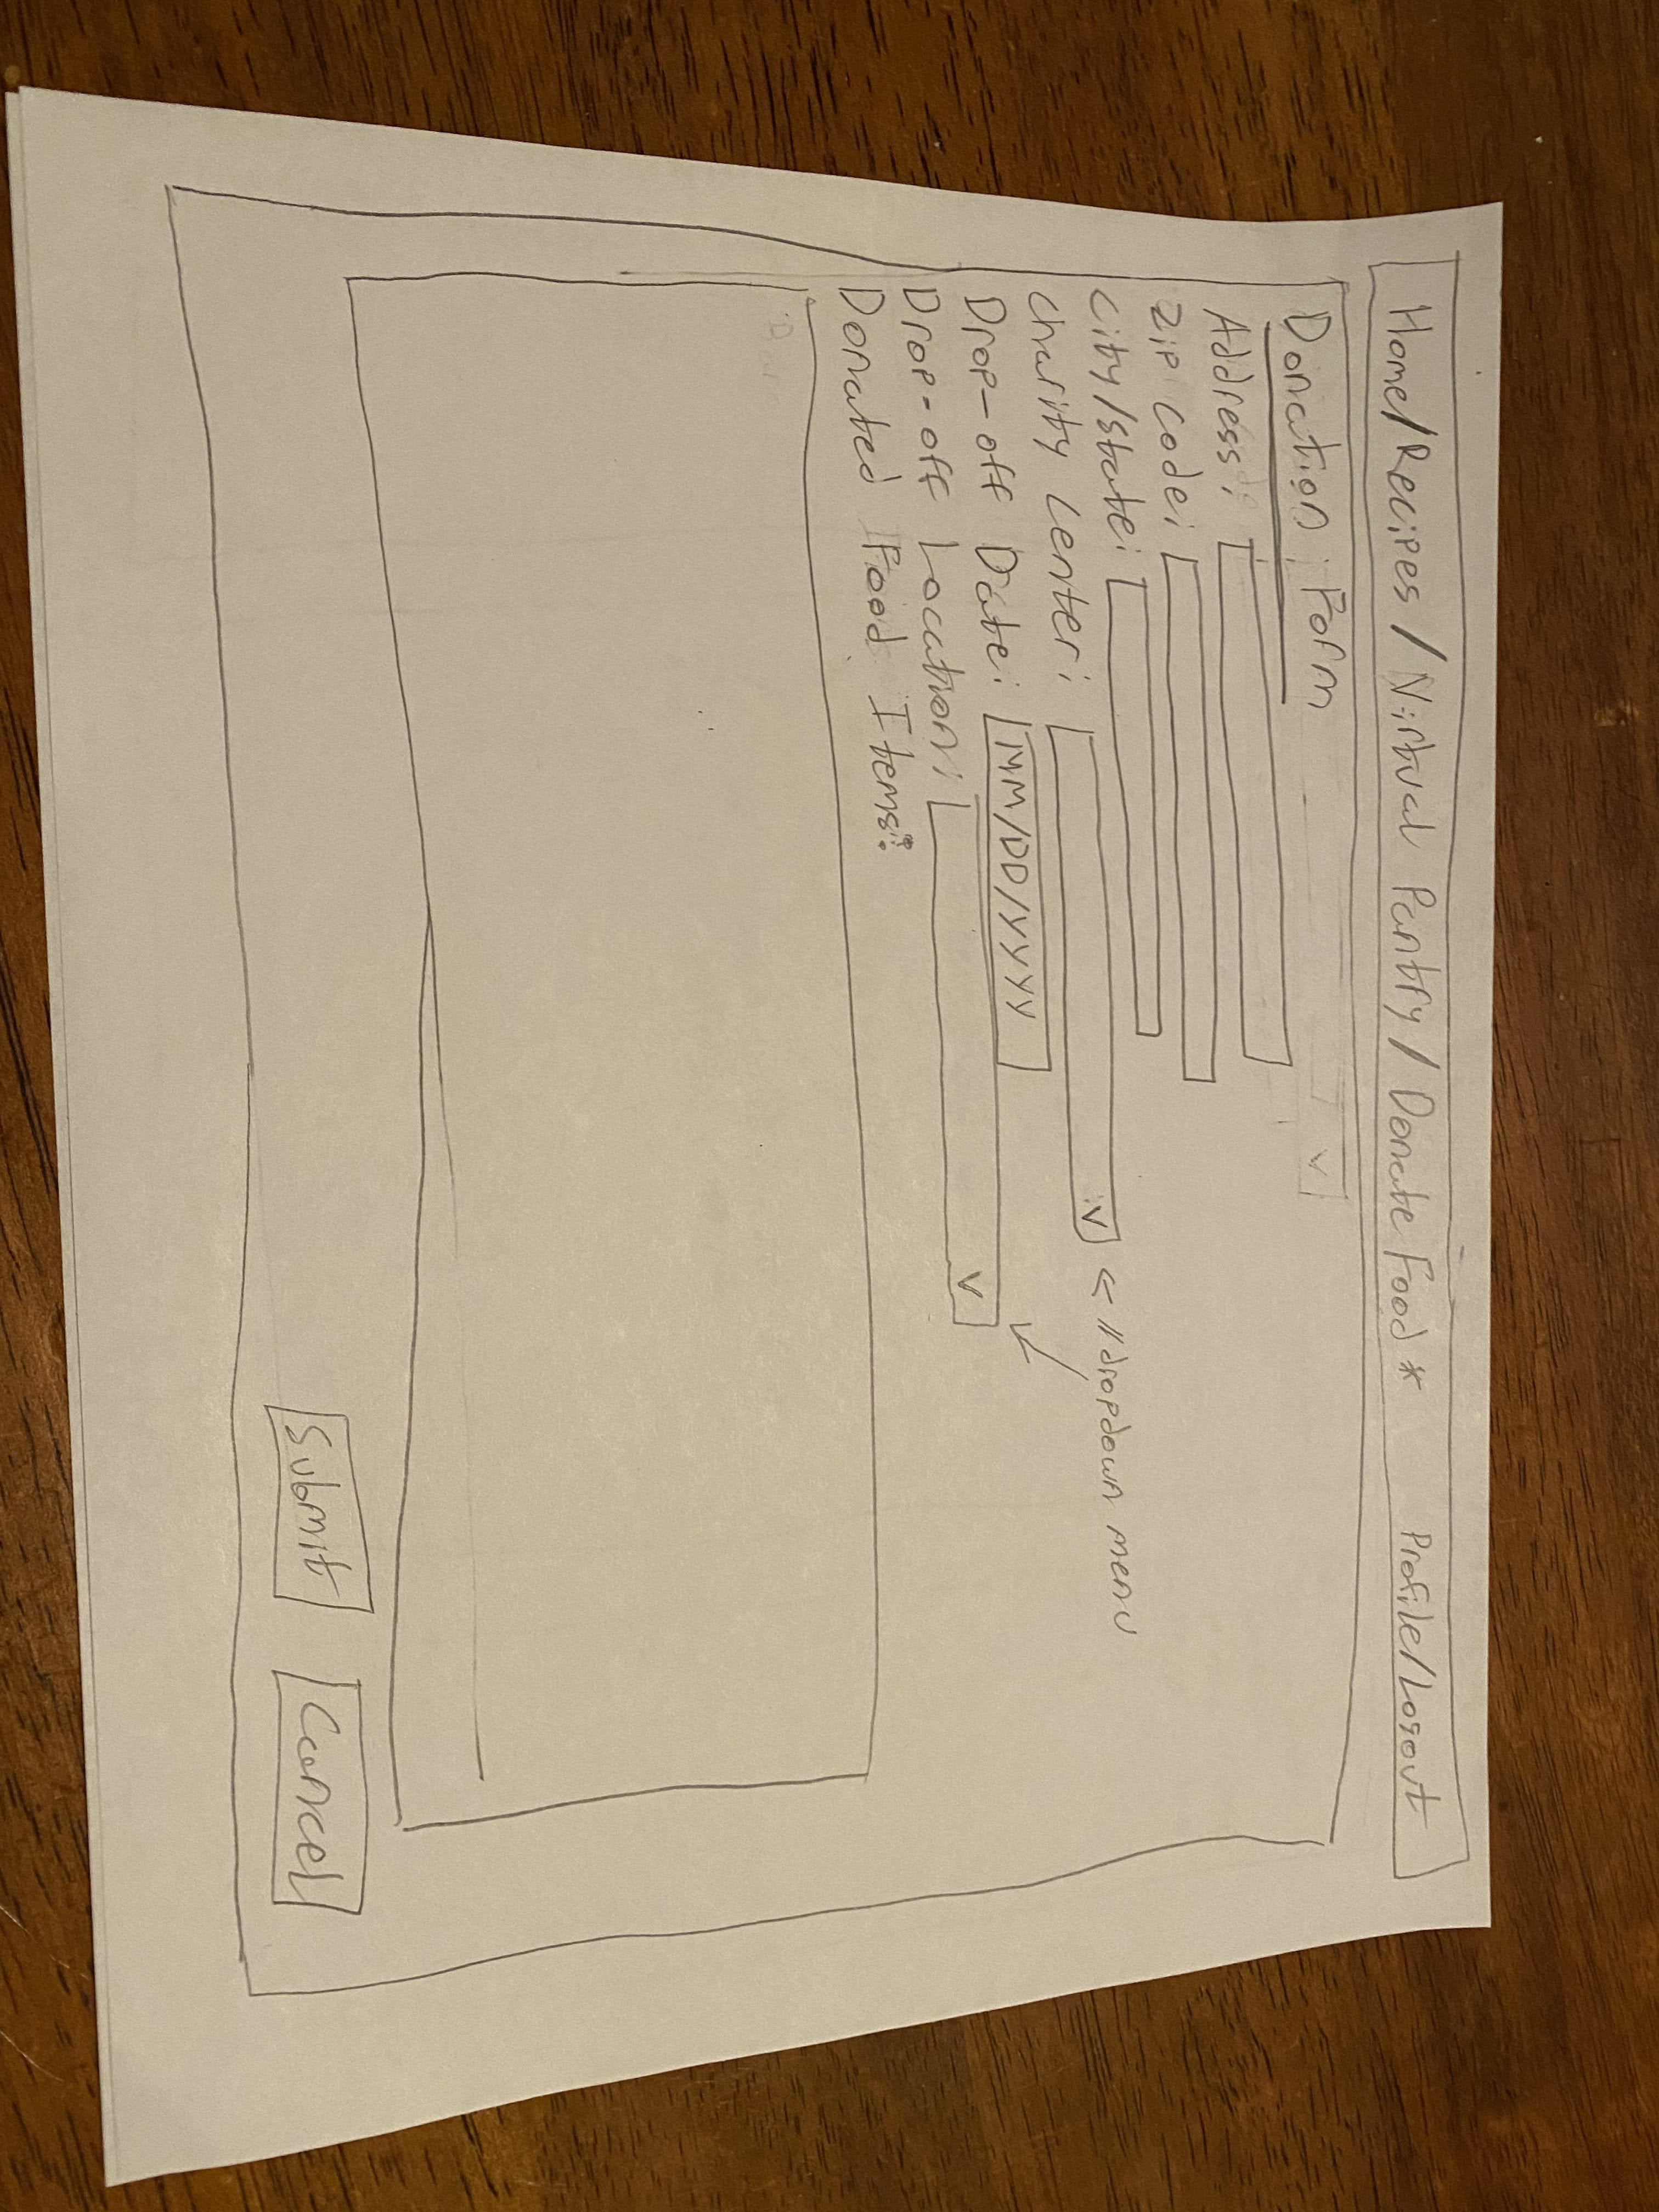 Home/Recipes / Virtual Pantry / Donate Food * Profile/Logout
Donation Form
V
Address:
Zip Code:
City/State:
Charity Center: V <- // dropdown menu
Drop-off Date: MM/DD/YYYY
Drop-off Location: V
Donated Food Items:
Submit Cancel